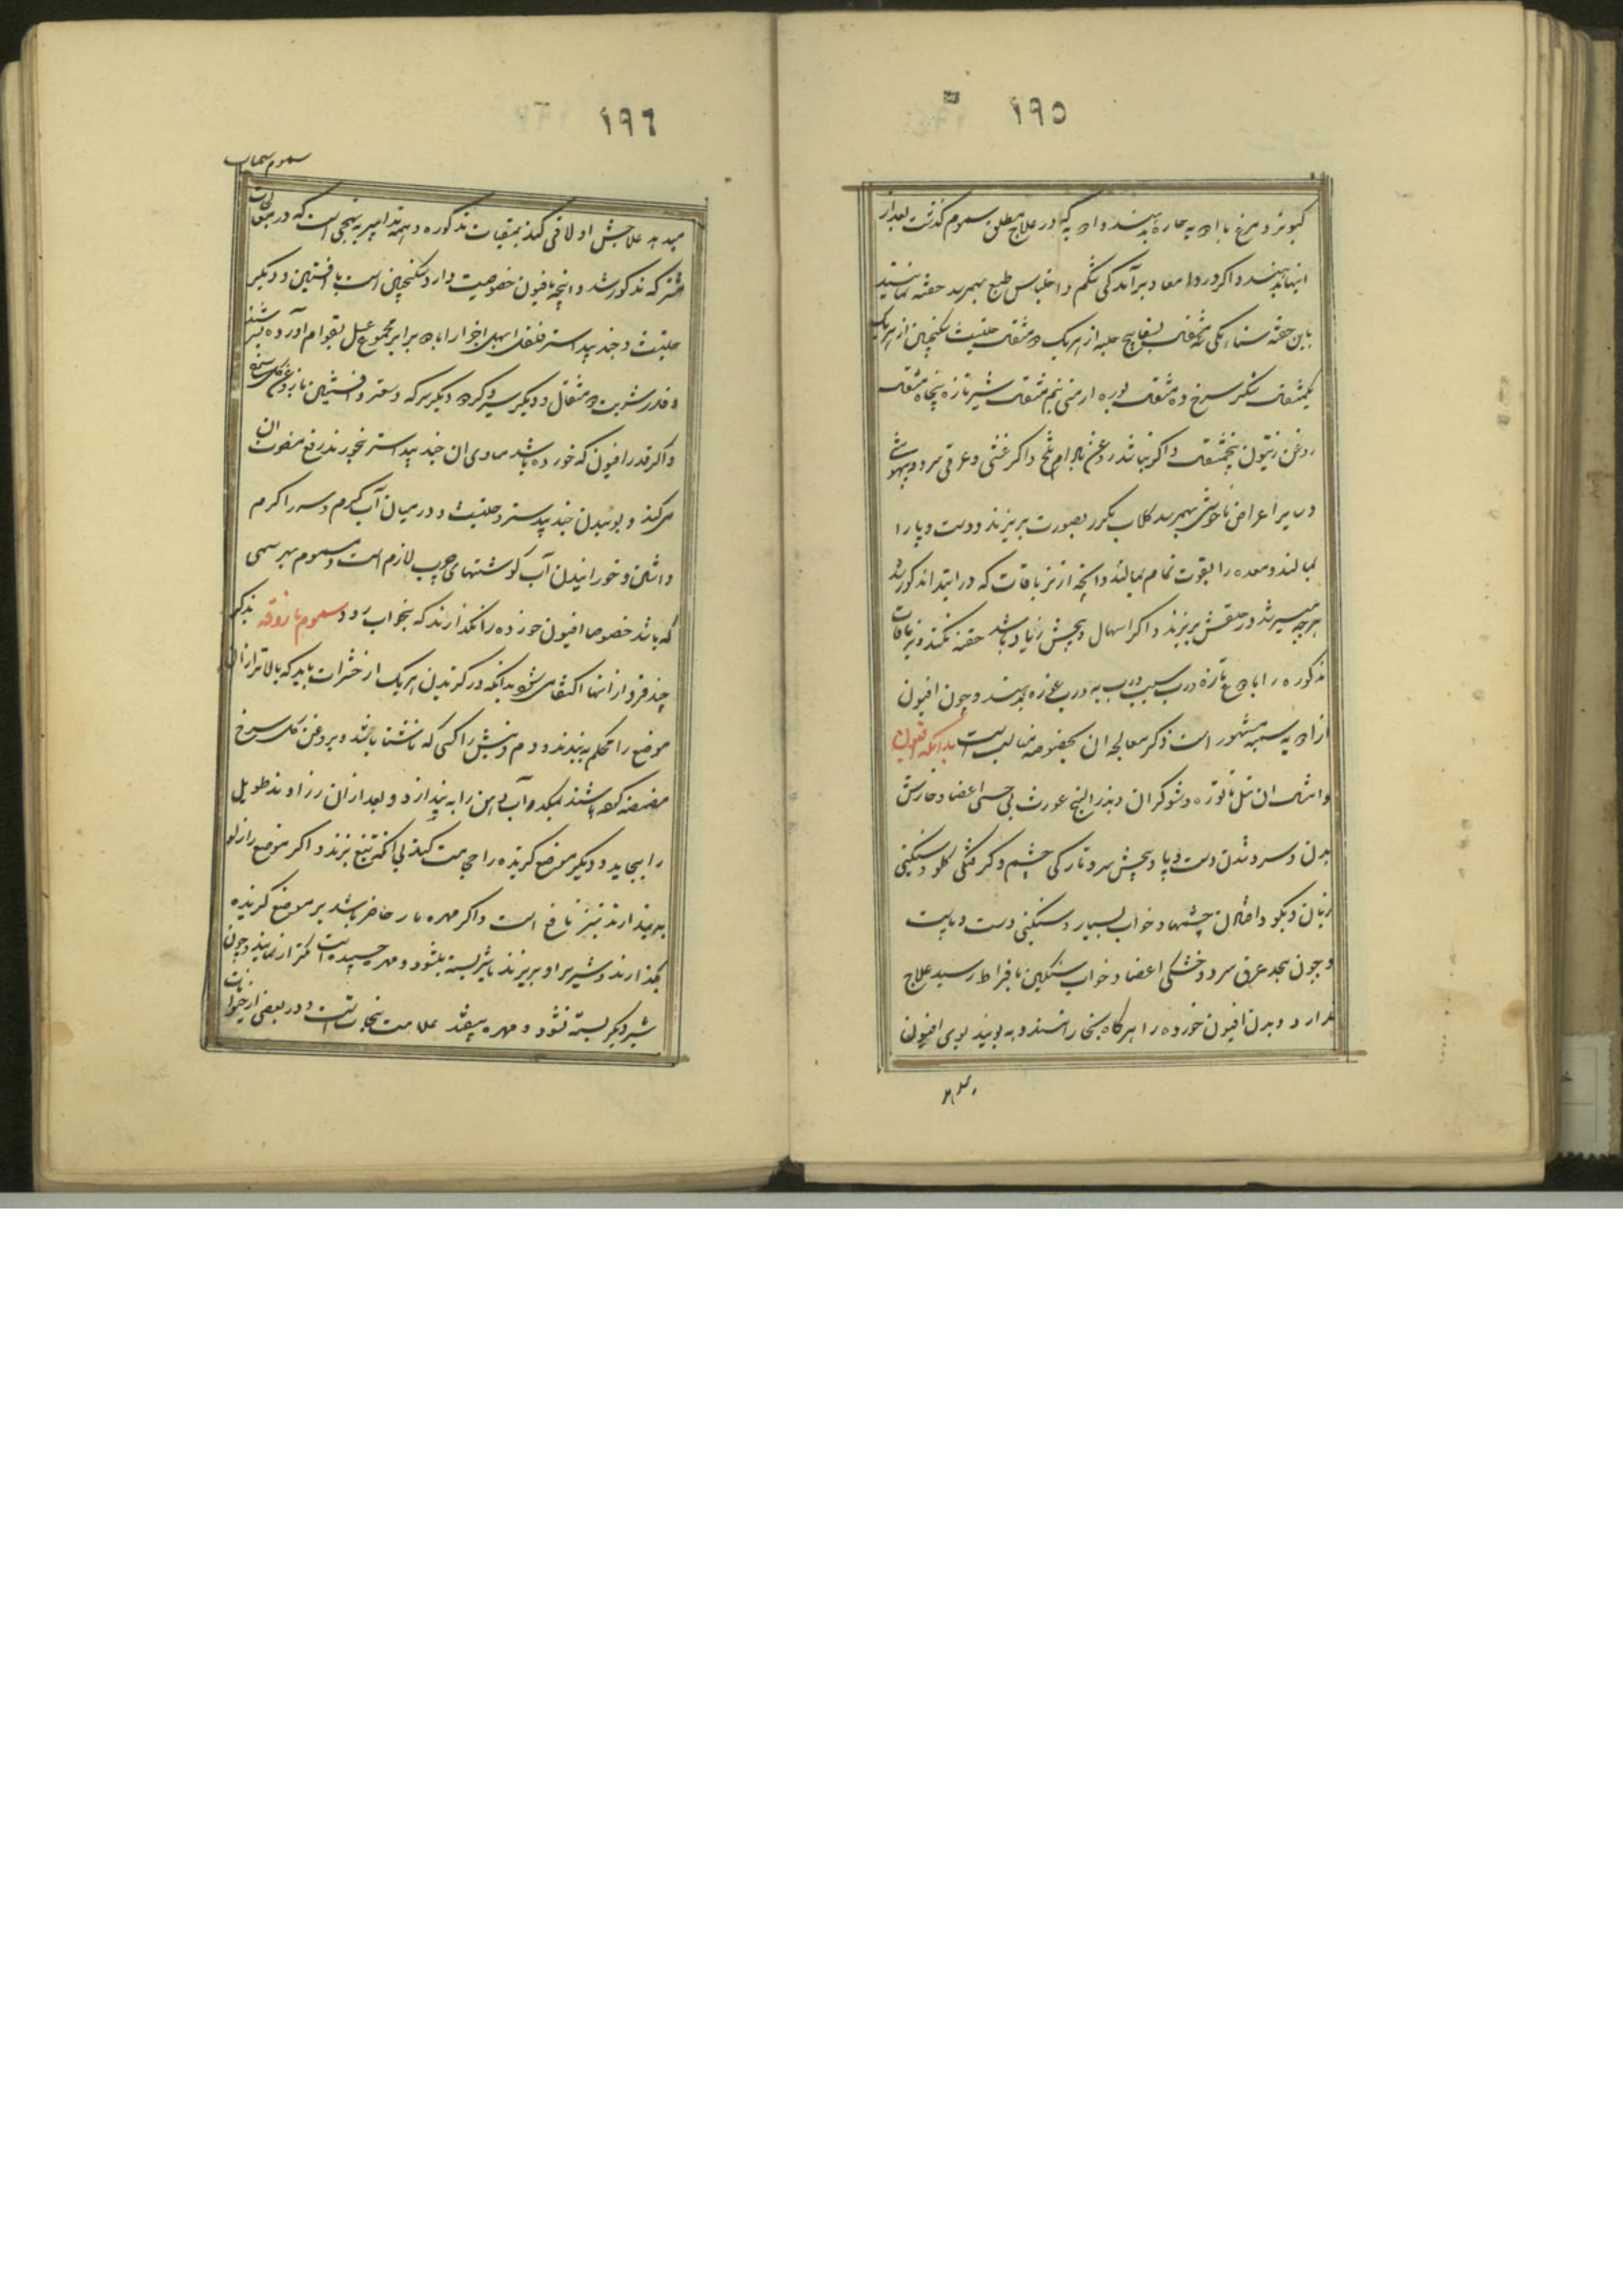 ١٩٥
کبوتر و مرغ با ادویه حاره بدهند و ادویه که در علاج مطلق سموم گذشت بعد از
اینها بدهند و اگر درد امعا و برآمدگی شکم و احتباس طبع بهمرسد حقنه نمایند
باین حقنه سناء مکی مثقال بسفایج حلبه از هریک دو مثقال حلتیت سکنجبین از هریک
یکمثقال شکر سرخ ده مثقال بوره ارمنی نیم مثقال شیر تازه پنجاه مثقال
روغن زیتون پنجمثقال و اگر نباشد روغن بادام تلخ و اگر غشی و عرق سرد و بیهوشی
و سایر اعراض ناخوشی بهمرسد کلاب مکرر بصورت بریزند و دست و پا را
بمالند و معده را بقوت تمام بمالند و آنچه از تریاقات که در ابتدا مذکور شد
هرچه میسر شد در حلقش بریزند و اگر اسهال و پیچش زیاد باشد حقنه نکنند و تریاقات
مذکوره را با دوغ تازه و رب سیب و رب به و رب غوره بدهند و چون افیون
از ادویه سمیه مشهور است ذکر معالجه ان بخصوصه مناسب است بدانکه افیون
و امثال ان مثل تاتوره و شوکران و بذر البنج عورث بی حسی اعضا و خارش
بدن و سرد شدن دست و پا و پیچش سر و تاریکی چشم و گرفتگی گلو و سنگینی
زبان و بگو دافتادن چشمها و خواب بسیار و سنگینی دست و پا است
و چون بحد عرق سرد و خشکی اعضا و خواب سنگین بافراط رسید علاج
ندارد و بدن افیون خورده را هرگاه بخارانند و به بویند بوی افیون
١٩٦
سموم
میدهد علاجش اولا قی کنند بمقیات مذکوره و همه تدابیر به نهجی است که در معالجات
مشترکه مذکور شد و آنچه بافیون خصوصیت دارد سکنجبین است با افسنتین و دیگر
حلتیت و جندبیدستر فلفل ابهل اجزا را با دو برابر مجموع عسل بقوام آورده بسرشند
و قدر شربت دو مثقال و دیگر سیر و گردو و دیگر سرکه و سعتر و افسنتین با روغن گل سرخ
و اگر قدر افیون که خورده باشد مساوی ان جندبیدستر بخورند رفع مضرت ان
میکند و بوئیدن جندبیدستر و حلتیت و در میان آب گرم و سر را گرم
داشتن و خورانیدن آب گوشتهای چرب لازم است و مسموم بهر سمی
که باشد خصوصا افیون خورده را نگذارند که بخواب رود سموم باروقه بذکر
چند فرد از انها اکتفا می شود بدانکه در گزیدن هریک از حشرات باید که بالاتر از ان
موضع را محکم به بندند و دم و نیش را کسی که ناشتا باشد و بروغن گل سرخ
مضمضه کرده باشند بمکد و آب دهن را به بیندازد و بعد از ان زراوند طویل
را بجاید و دیگر موضع گزیده را حجامت کنند بی آنکه تیغ بزنند و اگر موضع را زلو
به بیندازند نیز نافع است و اگر مهره مار حاضر باشد بر موضع گزیده
بگذارند و شیر بر او بریزند تا شیر بسته بشود و مهره چسبیده است مکرر نمایند و چون
شیر دیگر بسته نشود و مهره بیفتد علامت نجات است و در بعضی از حیوانات